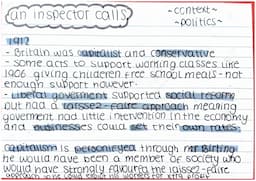 an inspector calls
~context~
~politics~
1912
- Britain was capitalist and conservative
- some acts to support working classes like
1906 giving childeren free school meals - not
enough support however
- Liberal goverment supported social reform
but had a laissez-faire approach meaning
goverment had little intervention in the economy
and businesses could set their own rates.
capitalism is personifyed through mr Birling
he would have been a member of society who
would have strongly favoured the laissez-faire
approach
workers for xtra profit